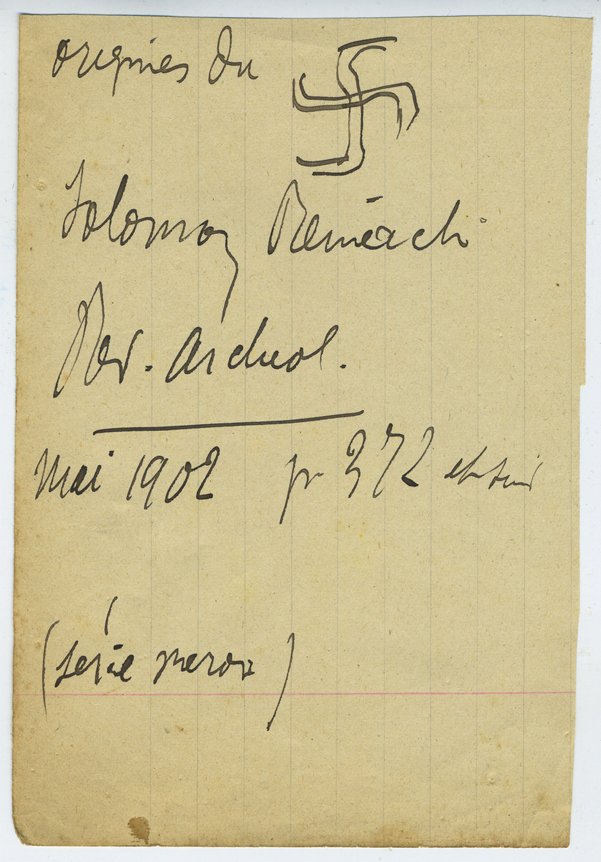 origines du 卐
Solomon Reinach
Rev. Archeol.
Mai 1902 p 372 et suiv
(série